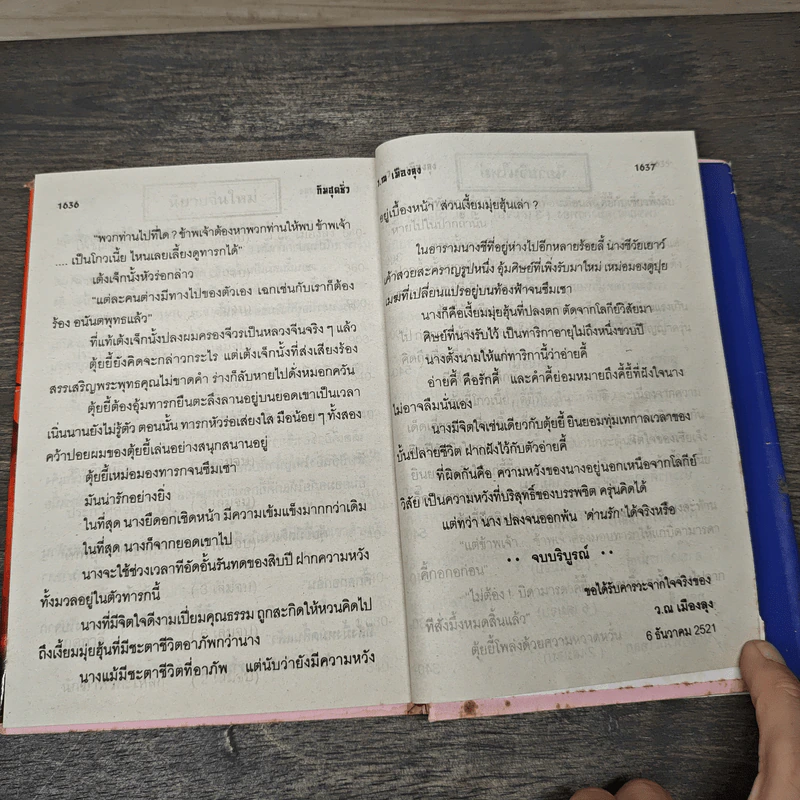 1636
กิมสุดชั่ว
“พวกท่านไปที่ใด ? ข้าพเจ้าต้องหาพวกท่านให้พบ ข้าพเจ้า
.... เป็นโกวเนี้ย ไหนเลยเลี้ยงดูทารกได้”
เต้งเจ็กนั้งหัวร่อกล่าว
“แต่ละคนต่างมีทางไปของตัวเอง เฉกเช่นกับเราก็ต้อง
ร้อง อนันตพุทธแล้ว”
ที่แท้เต้งเจ็กนั้งปลงผมครองจีวรเป็นหลวงจีนจริง ๆ แล้ว
ตุ้ยยี้ยังคิดจะกล่าวกระไร แต่เต้งเจ็กนั้งที่ส่งเสียงร้อง
สรรเสริญพระพุทธคุณไม่ขาดคำ ร่างก็ลับหายไปดั่งหมอกควัน
ตุ้ยยี้ต้องอุ้มทารกยืนตะลึงลานอยู่บนยอดเขาเป็นเวลา
เนิ่นนานยังไม่รู้ตัว ตอนนั้น ทารกหัวร่อเสียงใส มือน้อย ๆ ทั้งสอง
คว้าปอยผมของตุ้ยยี้เล่นอย่างสนุกสนานอยู่
ตุ้ยยี้เหม่อมองทารกจนซึมเซา
มันน่ารักอย่างยิ่ง
ในที่สุด นางยืดอกเชิดหน้า มีความเข้มแข็งมากกว่าเดิม
ในที่สุด นางก็จากยอดเขาไป
นางจะใช้ช่วงเวลาที่อัดอั้นรันทดของสิบปี ฝากความหวัง
ทั้งมวลอยู่ในตัวทารกนี้
นางที่มีจิตใจดีงามเปี่ยมคุณธรรม ถูกสะกิดให้หวนคิดไป
ถึงเงี้ยมมุ่ยฮุ้นที่มีชะตาชีวิตอาภัพกว่านาง
นางแม้มีชะตาชีวิตที่อาภัพ แต่นับว่ายังมีความหวัง
ว.ณ เมืองลุง
1637
อยู่เบื้องหน้า ส่วนเงี้ยมมุ่ยฮุ้นเล่า ?
ในอารามนางชีที่อยู่ห่างไปอีกหลายร้อยลี้ นางชีวัยเยาว์
เค้าสวยสะคราญรูปหนึ่ง อุ้มศิษย์ที่เพิ่งรับมาใหม่ เหม่อมองดูปุย
เมฆที่เปลี่ยนแปรอยู่บนท้องฟ้าจนซึมเซา
นางก็คือเงี้ยมมุ่ยฮุ้นที่ปลงตก ตัดจากโลกีย์วิสัยมา
ศิษย์ที่นางรับไว้ เป็นทาริกาอายุไม่ถึงหนึ่งขวบปี
นางตั้งนามให้แก่ทาริกานี้ว่าอ่ายคี้
อ่ายคี้ คือรักคี้ และคำคี้ย่อมหมายถึงคี้ยี้ที่ฝังใจนาง
ไม่อาจลืมนั่นเอง
นางมีจิตใจเช่นเดียวกับตุ้ยยี้ ยินยอมทุ่มเทกาลเวลาของ
บั้นปลายชีวิต ฝากฝังไว้กับตัวอ่ายคี้
ที่ผิดกันคือ ความหวังของนางอยู่นอกเหนือจากโลกีย์
วิสัย เป็นความหวังที่บริสุทธิ์ของบรรพชิต ครุ่นคิดได้
แต่ทว่า นาง ปลงจนออกพ้น ‘ด่านรัก’ ได้จริงหรือ
•• จบบริบูรณ์ ••
ขอได้รับคารวะจากใจจริงของ
ว.ณ เมืองลุง
6 ธันวาคม 2521